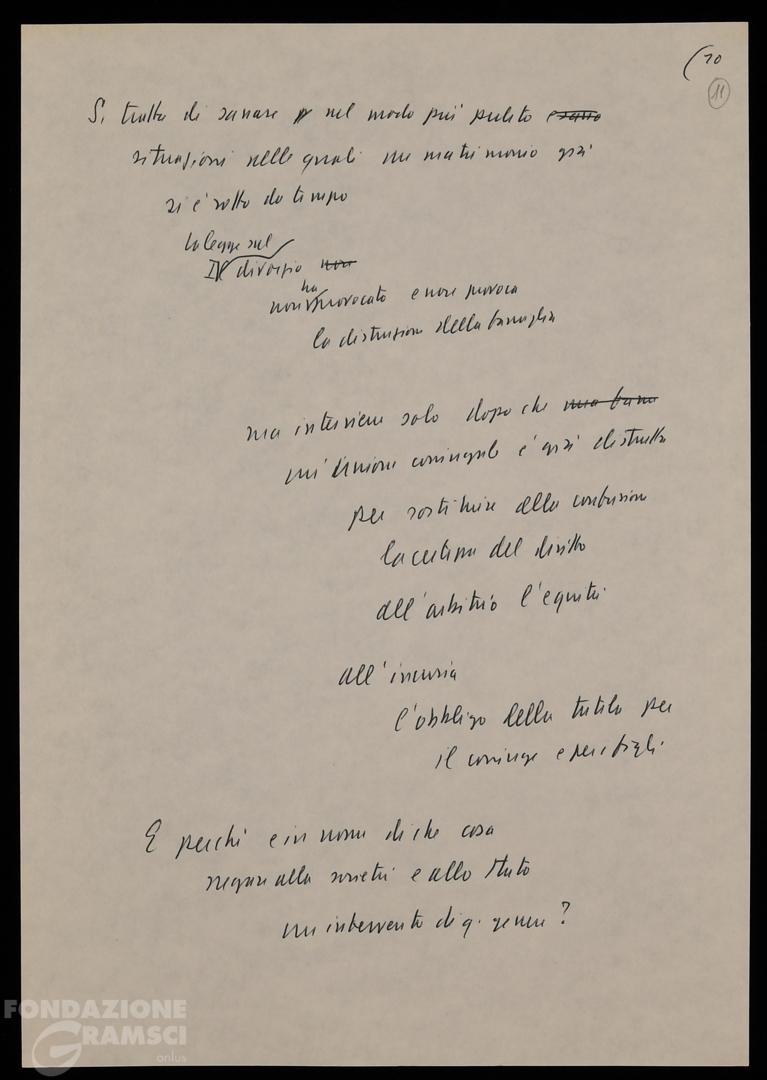 (10
11
Si tratta di sanare nel modo più pulito e sano
situazioni nelle quali un matrimonio già
si è rotto da tempo
La legge sul
Il divorzio non
ha
non provocato e non provoca
la distruzione della famiglia
ma interviene solo dopo che una fam
un'unione coniugale è già distrutta
per sostituire alla confusione
la certezza del diritto
all'arbitrio l'equità
all'incuria
l'obbligo della tutela per
il coniuge e per i figli
E perché e in nome di che cosa
negare alla società e allo Stato
un intervento di q. genere?
FONDAZIONE
GRAMSCI
onlus